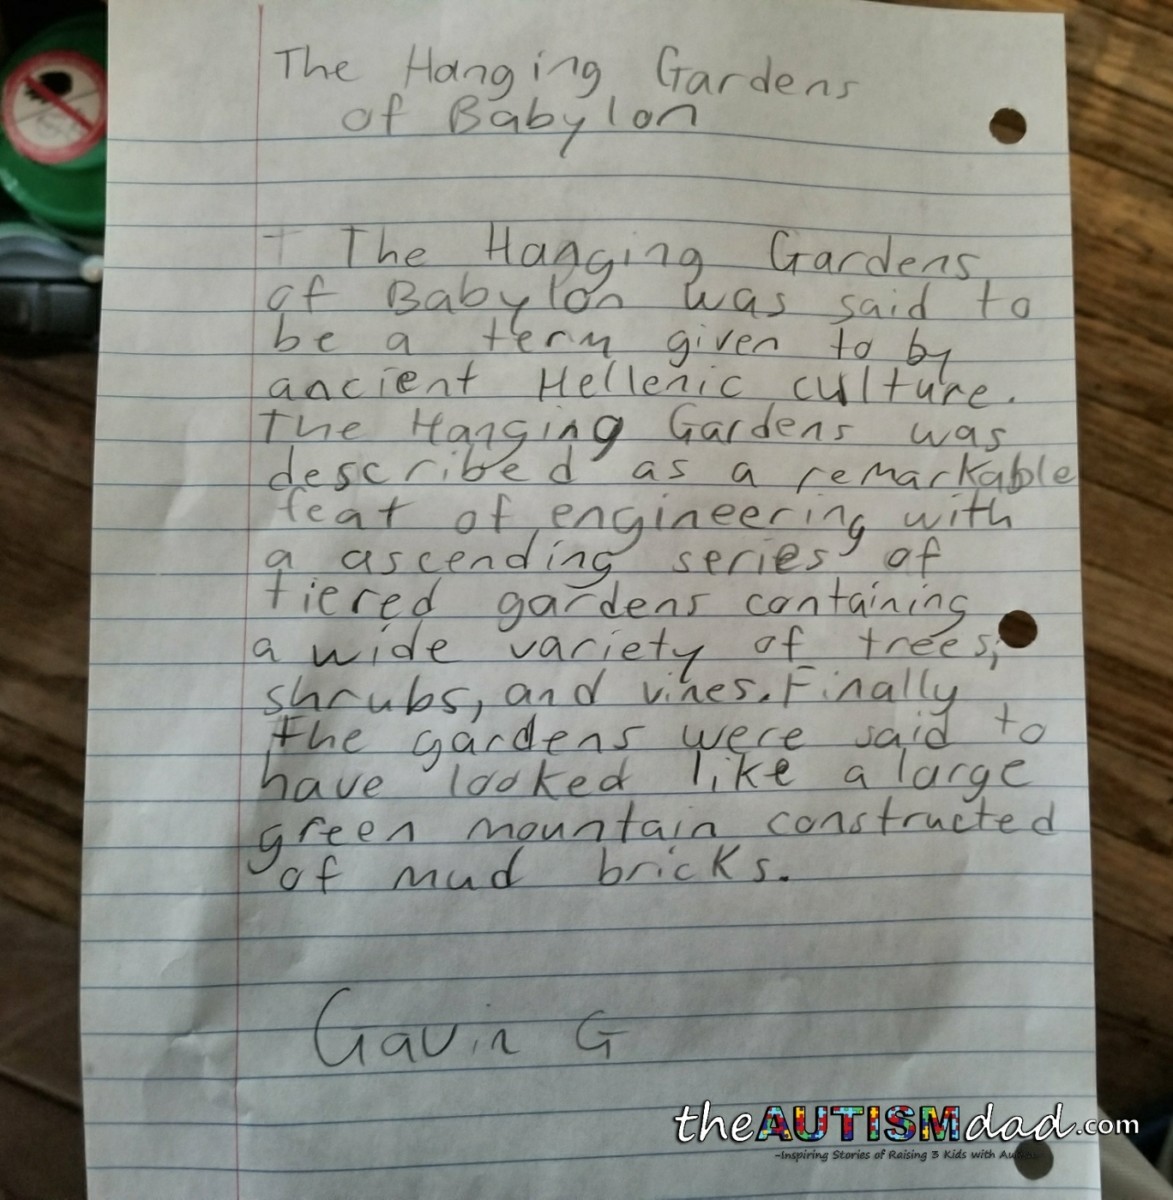 The Hanging Gardens
of Babylon
The Hanging Gardens
of Babylon was said to
be a term given to by
ancient Hellenic culture.
The Hanging Gardens was
described as a remarkable
feat of engineering with
a ascending series of
tiered gardens containing
a wide variety of trees,
shrubs, and vines. Finally
the gardens were said to
have looked like a large
green mountain constructed
of mud bricks.
Gavin G
theAUTISMdad.com
~Inspiring Stories of Raising 3 Kids with